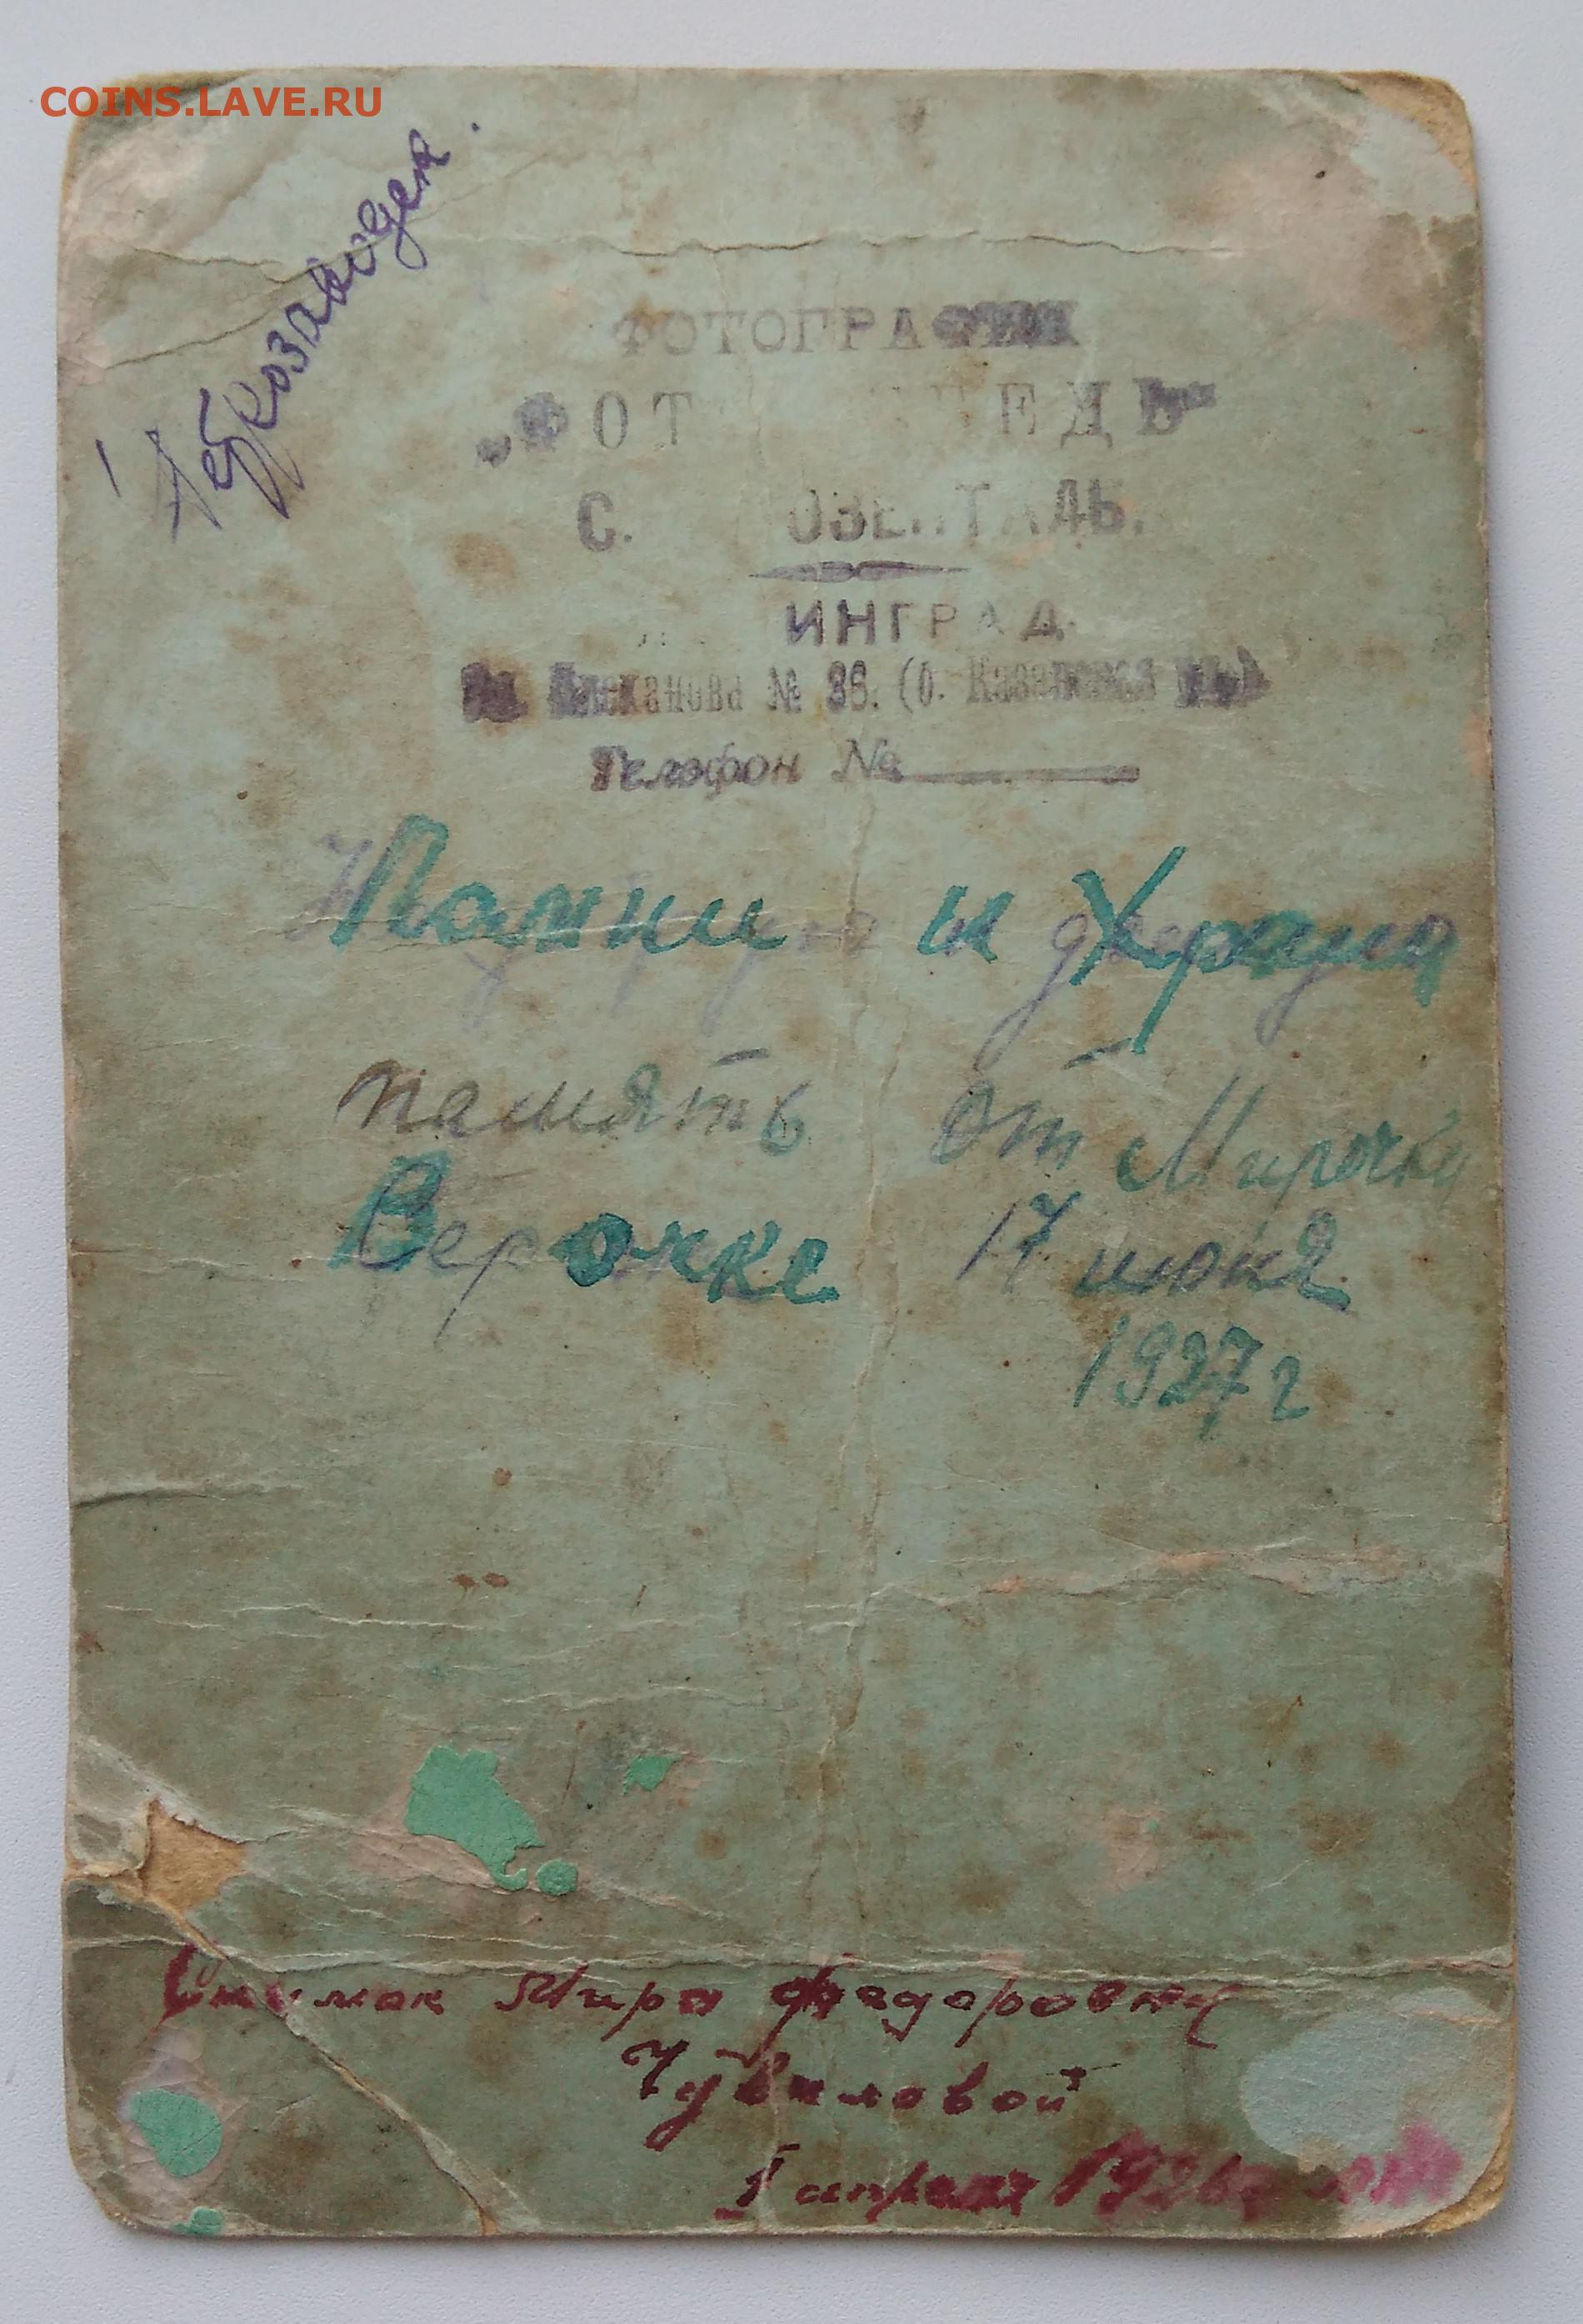 COINS.LAVE.RU
ФОТОГРАФИЯ
С. ОЗЕНТАЛЬ.
ИНГРАД
Плеханова № 36. (б. Казанская
Телефон №
Помни и Храни
память от Мирочки
Верочке 17 июня
1927 г
Снимок Мира Федоровны
Чувиловой
1 апреля 1926